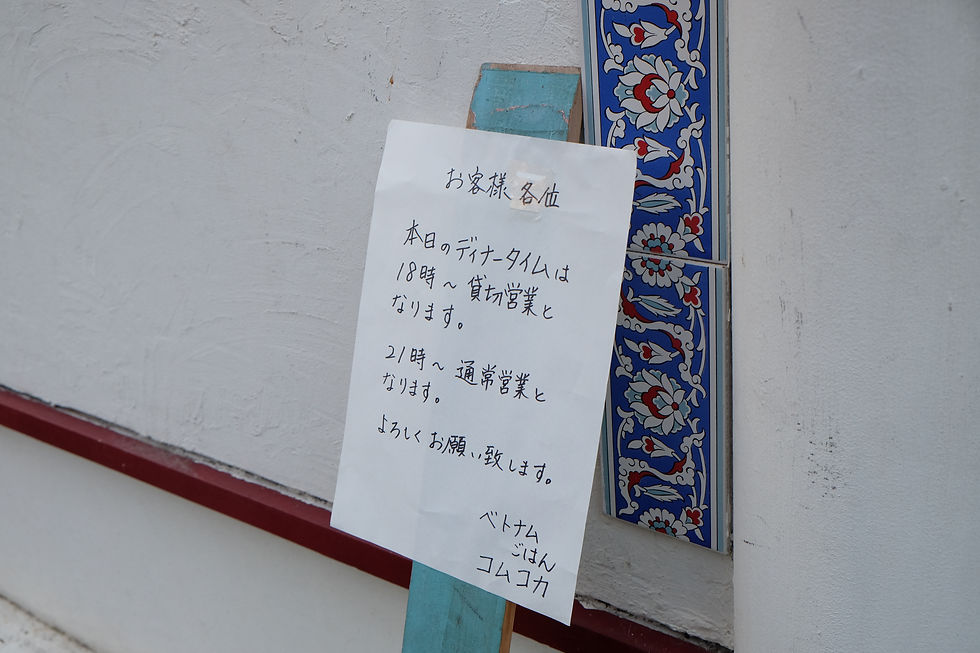 お客様各位
本日のディナータイムは
18時〜貸切営業と
なります。
21時〜通常営業と
なります。
よろしくお願い致します。
ベトナム
ごはん
コムコカ